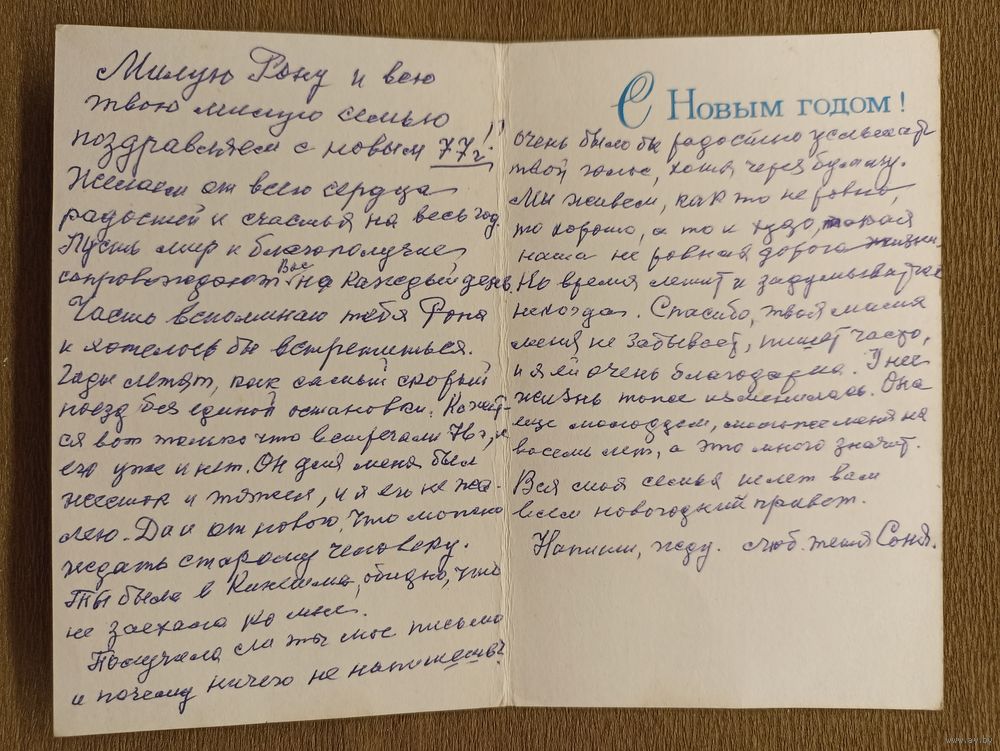 Милую Рону и всю
твою милую семью
поздравляем с новым 77г.!!
Желаем от всего сердца
радостей и счастья на весь год.
Пусть мир и благополучие
сопровождают Вас на каждый день
Часто вспоминаю тебя Рона
и хотелось бы встретиться.
Годы летят, как самый скорый
поезд без единой остановки. Кажет-
ся вот только что встречали 76г, а
его уже и нет. Он для меня был
жесток и тяжел, и я его не жа-
лею. Да и от нового, что можно
ждать старому человеку.
Ты была в Кинешме, обидно, что
не заехала ко мне.
Получила ли ты мое письмо
и почему ничего не напишешь?
С Новым годом!
очень было бы радостно услыхать
твой голос, хотя, через бумагу.
Мы живем, как то не ровно,
то хорошо, а то и худо, такая
наша не ровная дорога жизни.
Но время летит и задумываться
некогда. Спасибо, твоя мама
меня не забывает, пишет часто,
и я ей очень благодарна. У нее
жизнь тоже изменилась. Она
еще молодцом, моложе меня на
восемь лет, а это много значит.
Вся моя семья шлет вам
всем новогодний привет.
Напиши, жду. Люб. тетя Соня.
www.ay.by